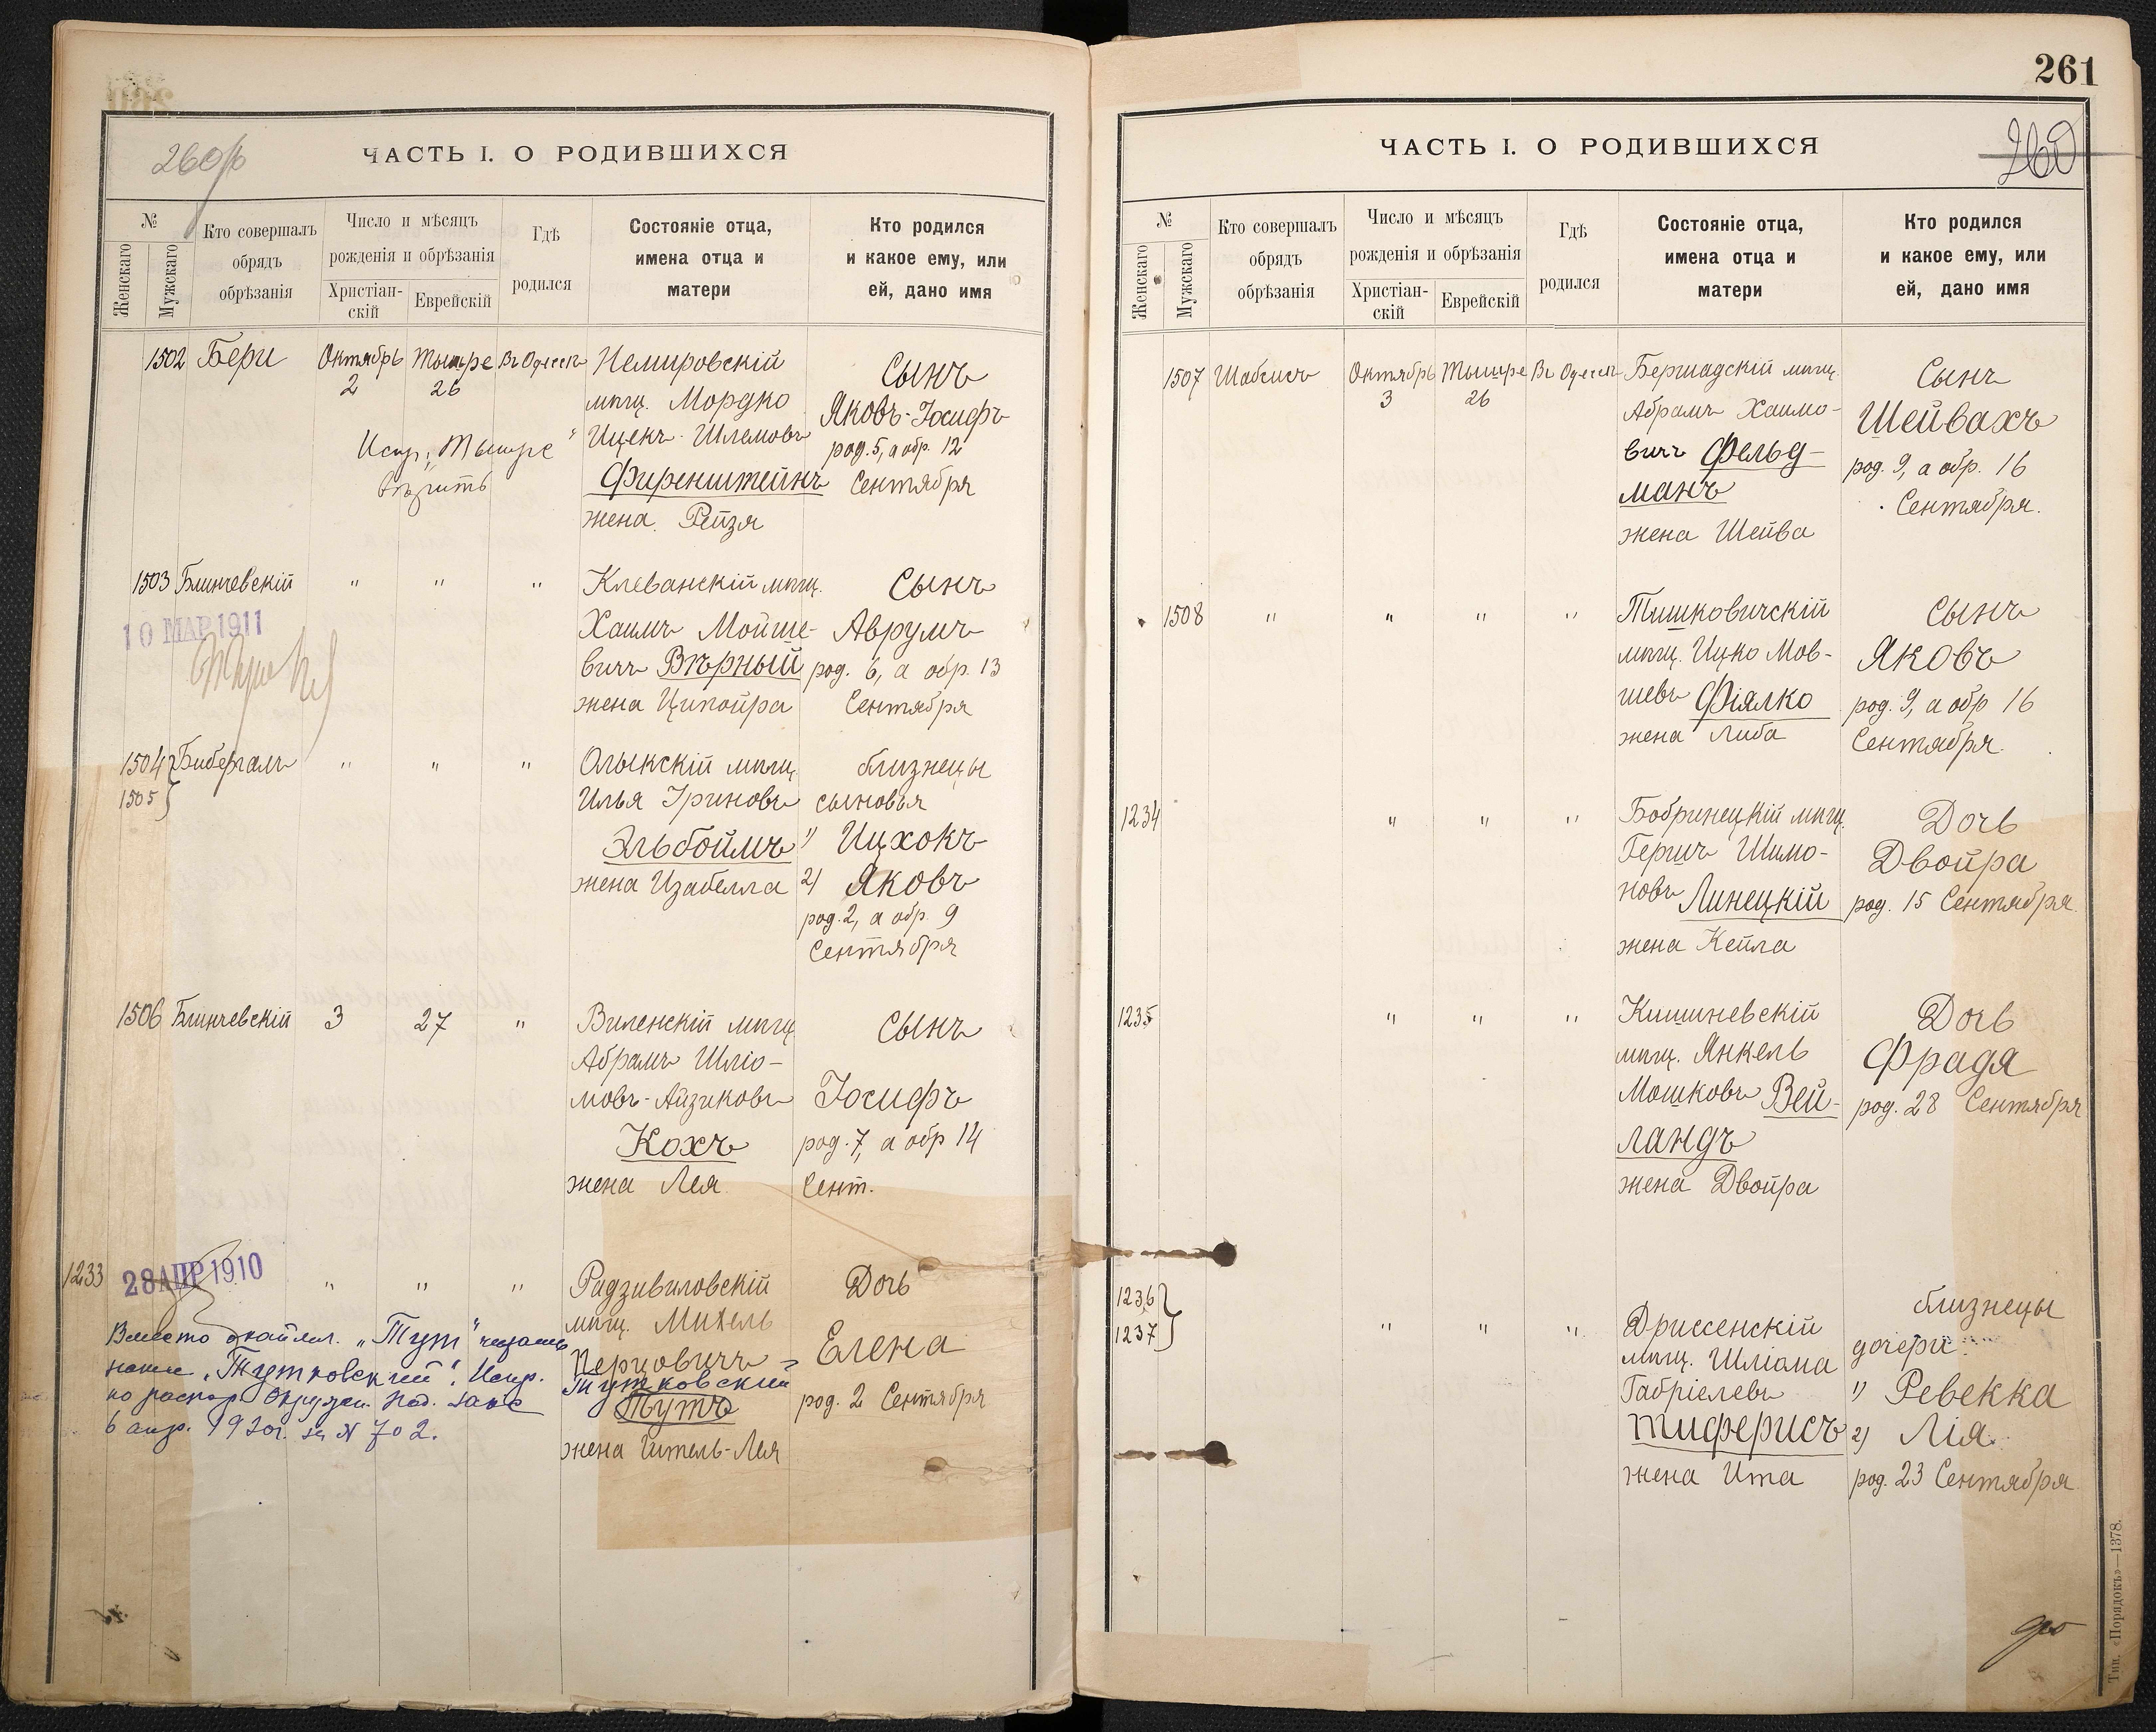 260 об
ЧАСТЬ I. О РОДИВШИХСЯ
№
Женскаго
Мужскаго
Кто совершалъ
обрядъ
обрѣзанія
Число и мѣсяцъ
рожденія и обрѣзанія
Христіан-
скій
Еврейскій
Гдѣ
родился
Состояніе отца,
имена отца и
матери
Кто родился
и какое ему, или
ей, дано имя
1502 Бери Октябрь Тышре Въ Одессѣ Немировскій Сынъ
2 26
мѣщ. Мордко Яковъ-Іосифъ
Ицекъ-Шлемовъ род. 5, а обр. 12
Испр. „Тышре“
Фиренштейнъ Сентября
жена Рейзя
1503 Блинчевскій " " " Клеванскій мѣщ. Сынъ
10 МАР 1911
Хаимъ Мойше- Аврумъ
вичъ Вѣрный род. 6, а обр. 13
жена Ципойра Сентября
1504 Бибергалъ " " " Олыкскій мѣщ. близнецы
1505 Илья Ириновъ сыновья
Эльбоймъ 1) Ицхокъ
жена Изабелла 2) Яковъ
род. 2, а обр. 9
Сентября
1506 Блинчевскій 3 27 " Виленскій мѣщ. Сынъ
Абрамъ Шліо-
мовъ-Айзиковъ Іосифъ
Кохъ род. 7, а обр 14
жена Лея Сент.
1233 28 АПР 1910 " " " Радзивиловскій Дочь
мѣщ. Михель
Перцовичъ Елена
Тутковский
Тутъ род. 2 Сентября
жена Гитель-Лея
Вместо фамил. „Тут“
„Тутковский“. Испр.
по распор. Окружн. под. Загс
6 апр. 1920г. за N 702.
261
260
ЧАСТЬ I. О РОДИВШИХСЯ
№
Женскаго
Мужскаго
Кто совершалъ
обрядъ
обрѣзанія
Число и мѣсяцъ
рожденія и обрѣзанія
Христіан-
скій
Еврейскій
Гдѣ
родился
Состояніе отца,
имена отца и
матери
Кто родился
и какое ему, или
ей, дано имя
1507 Шабсисъ Октябрь Тышре Въ Одессѣ Бершадскій мѣщ. Сынъ
3 26
Абрамъ Хаимо- Шейвахъ
вичъ Фельд- род. 9, а обр. 16
манъ Сентября.
жена Шейва
1508 " " " " Тишковичскій Сынъ
мѣщ. Ицко Мов- Яковъ
шевъ Фіялко род. 9, а обр 16
жена Либа Сентября.
1234 " " " Бобринецкій мѣщ. Дочь
Гершъ Шимо- Двойра
новъ Линецкій род. 15 Сентября.
жена Кейла
1235 " " " Кишиневскій Дочь
мѣщ. Янкель Фрадя
Мошковъ Вей- род. 28 Сентября
ландъ
жена Двойра
1236 близнецы
1237 " " " Дриссенскій дочери
мѣщ. Шліома
Габріелевъ 1) Ревекка
Тиферисъ 2) Лія
жена Ита род. 23 Сентября
Тип. «Порядокъ»—1378.